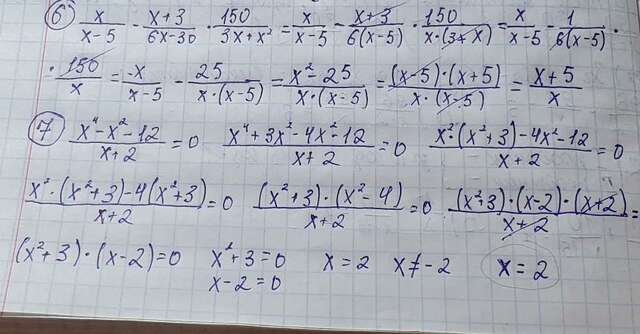 ⑥ x/(x-5) - (x+3)/(6x-30) · 150/(3x+x²) = x/(x-5) - (x+3)/(6(x-5)) · 150/(x·(3+x)) = x/(x-5) - 1/(6(x-5)) ·
· 150/x = x/(x-5) - 25/(x·(x-5)) = (x²-25)/(x·(x-5)) = ((x-5)·(x+5))/(x·(x-5)) = (x+5)/x
⑦ (x⁴-x²-12)/(x+2) = 0 (x⁴+3x²-4x²-12)/(x+2) = 0 (x²·(x²+3)-4x²-12)/(x+2) = 0
(x²·(x²+3)-4(x²+3))/(x+2) = 0 ((x²+3)·(x²-4))/(x+2) = 0 ((x²+3)·(x-2)·(x+2))/(x+2) =
(x²+3)·(x-2)=0 x²+3=0 x=2 x≠-2 x=2
x-2=0